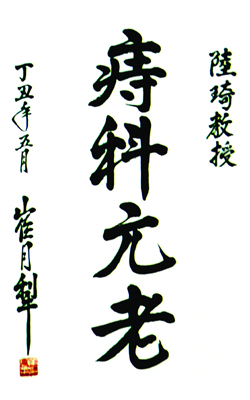 陸琦教授
痔科元老
丁丑年五月
崔月犁